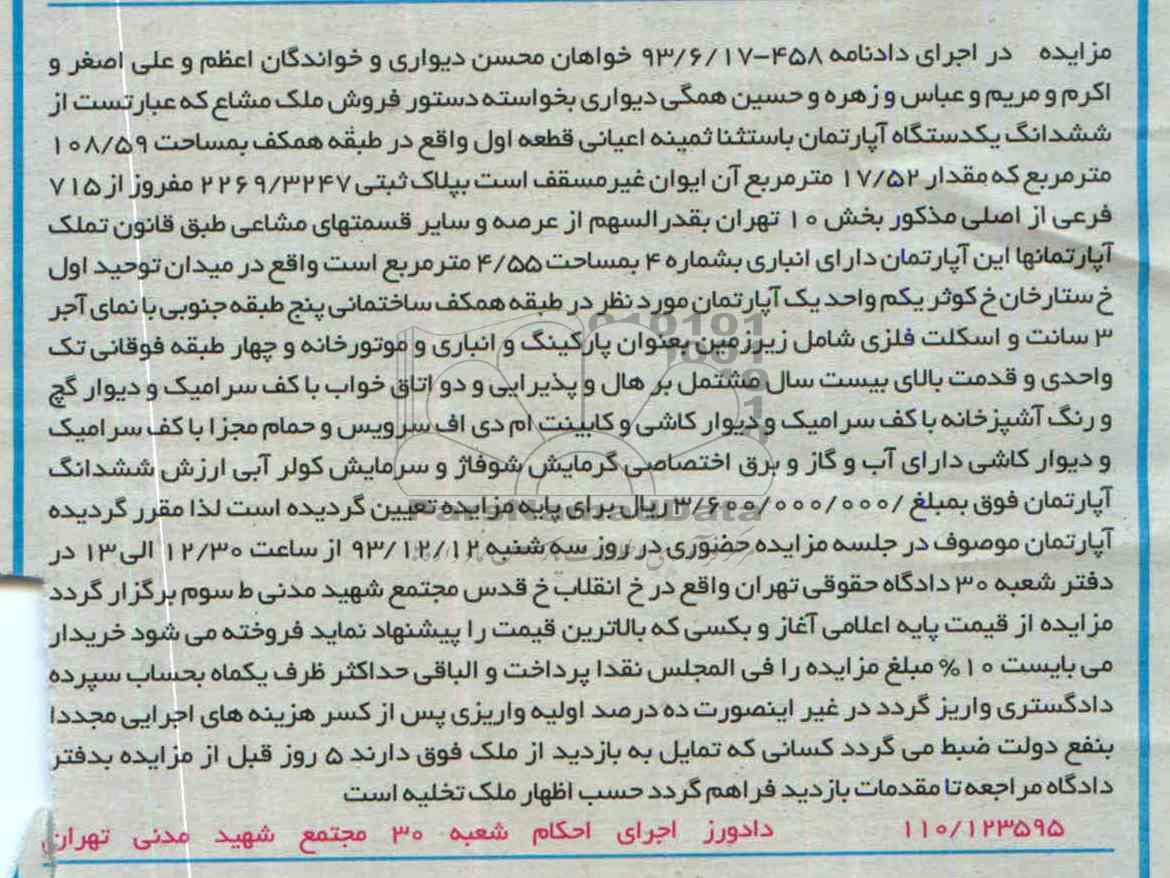 مزایده در اجرای دادنامه ۴۵۸-۹۳/۶/۱۷ خواهان محسن دیواری و خواندگان اعظم و علی اصغر و
اکرم و مریم و عباس و زهره و حسین همگی دیواری بخواسته دستور فروش ملک مشاع که عبارتست از
ششدانگ یکدستگاه آپارتمان باستثنا ثمینه اعیانی قطعه اول واقع در طبقه همکف بمساحت ۱۰۸/۵۹
مترمربع که مقدار ۱۷/۵۲ مترمربع آن ایوان غیرمسقف است بپلاک ثبتی ۲۲۶۹/۳۲۴۷ مفروز از ۷۱۵
فرعی از اصلی مذکور بخش ۱۰ تهران بقدرالسهم از عرصه و سایر قسمتهای مشاعی طبق قانون تملک
آپارتمانها این آپارتمان دارای انباری بشماره ۴ بمساحت ۴/۵۵ مترمربع است واقع در میدان توحید اول
خ ستارخان خ کوثر یکم واحد یک آپارتمان مورد نظر در طبقه همکف ساختمانی پنج طبقه جنوبی با نمای آجر
۳ سانت و اسکلت فلزی شامل زیرزمین بعنوان پارکینگ و انباری و موتورخانه و چهار طبقه فوقانی تک
واحدی و قدمت بالای بیست سال مشتمل بر هال و پذیرایی و دو اتاق خواب با کف سرامیک و دیوار گچ
و رنگ آشپزخانه با کف سرامیک و دیوار کاشی و کابینت ام دی اف سرویس و حمام مجزا با کف سرامیک
و دیوار کاشی دارای آب و گاز و برق اختصاصی گرمایش شوفاژ و سرمایش کولر آبی ارزش ششدانگ
آپارتمان فوق بمبلغ /۳/۶۰۰/۰۰۰/۰۰۰ ریال برای پایه مزایده تعیین گردیده است لذا مقرر گردیده
ParsNamadData
آپارتمان موصوف در جلسه مزایده حضوری در روز سه شنبه ۹۳/۱۲/۱۲ از ساعت ۱۲/۳۰ الی ۱۳ در
دفتر شعبه ۳۰ دادگاه حقوقی تهران واقع در خ انقلاب خ قدس مجتمع شهید مدنی ط سوم برگزار گردد
مزایده از قیمت پایه اعلامی آغاز و بکسی که بالاترین قیمت را پیشنهاد نماید فروخته می شود خریدار
می بایست ۱۰% مبلغ مزایده را فی المجلس نقدا پرداخت و الباقی حداکثر ظرف یکماه بحساب سپرده
دادگستری واریز گردد در غیر اینصورت ده درصد اولیه واریزی پس از کسر هزینه های اجرایی مجددا
بنفع دولت ضبط می گردد کسانی که تمایل به بازدید از ملک فوق دارند ۵ روز قبل از مزایده بدفتر
دادگاه مراجعه تا مقدمات بازدید فراهم گردد حسب اظهار ملک تخلیه است
۱۱۰/۱۲۳۵۹۵ دادورز اجرای احکام شعبه ۳۰ مجتمع شهید مدنی تهران